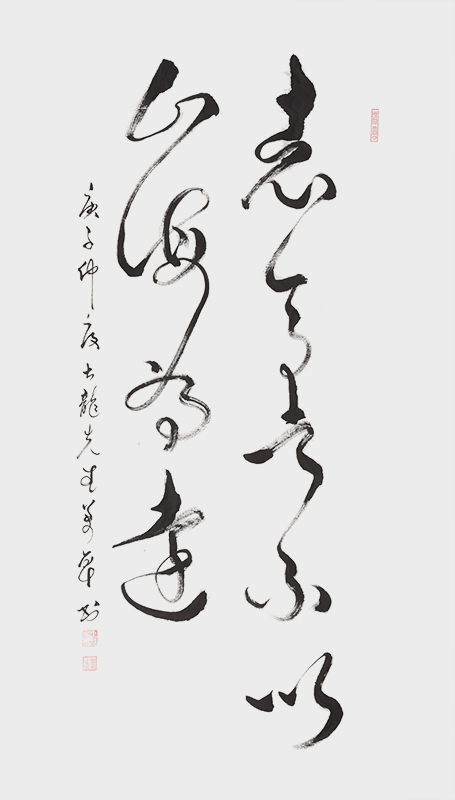 志合者不以
山海為遠
庚子仲夏龍先生